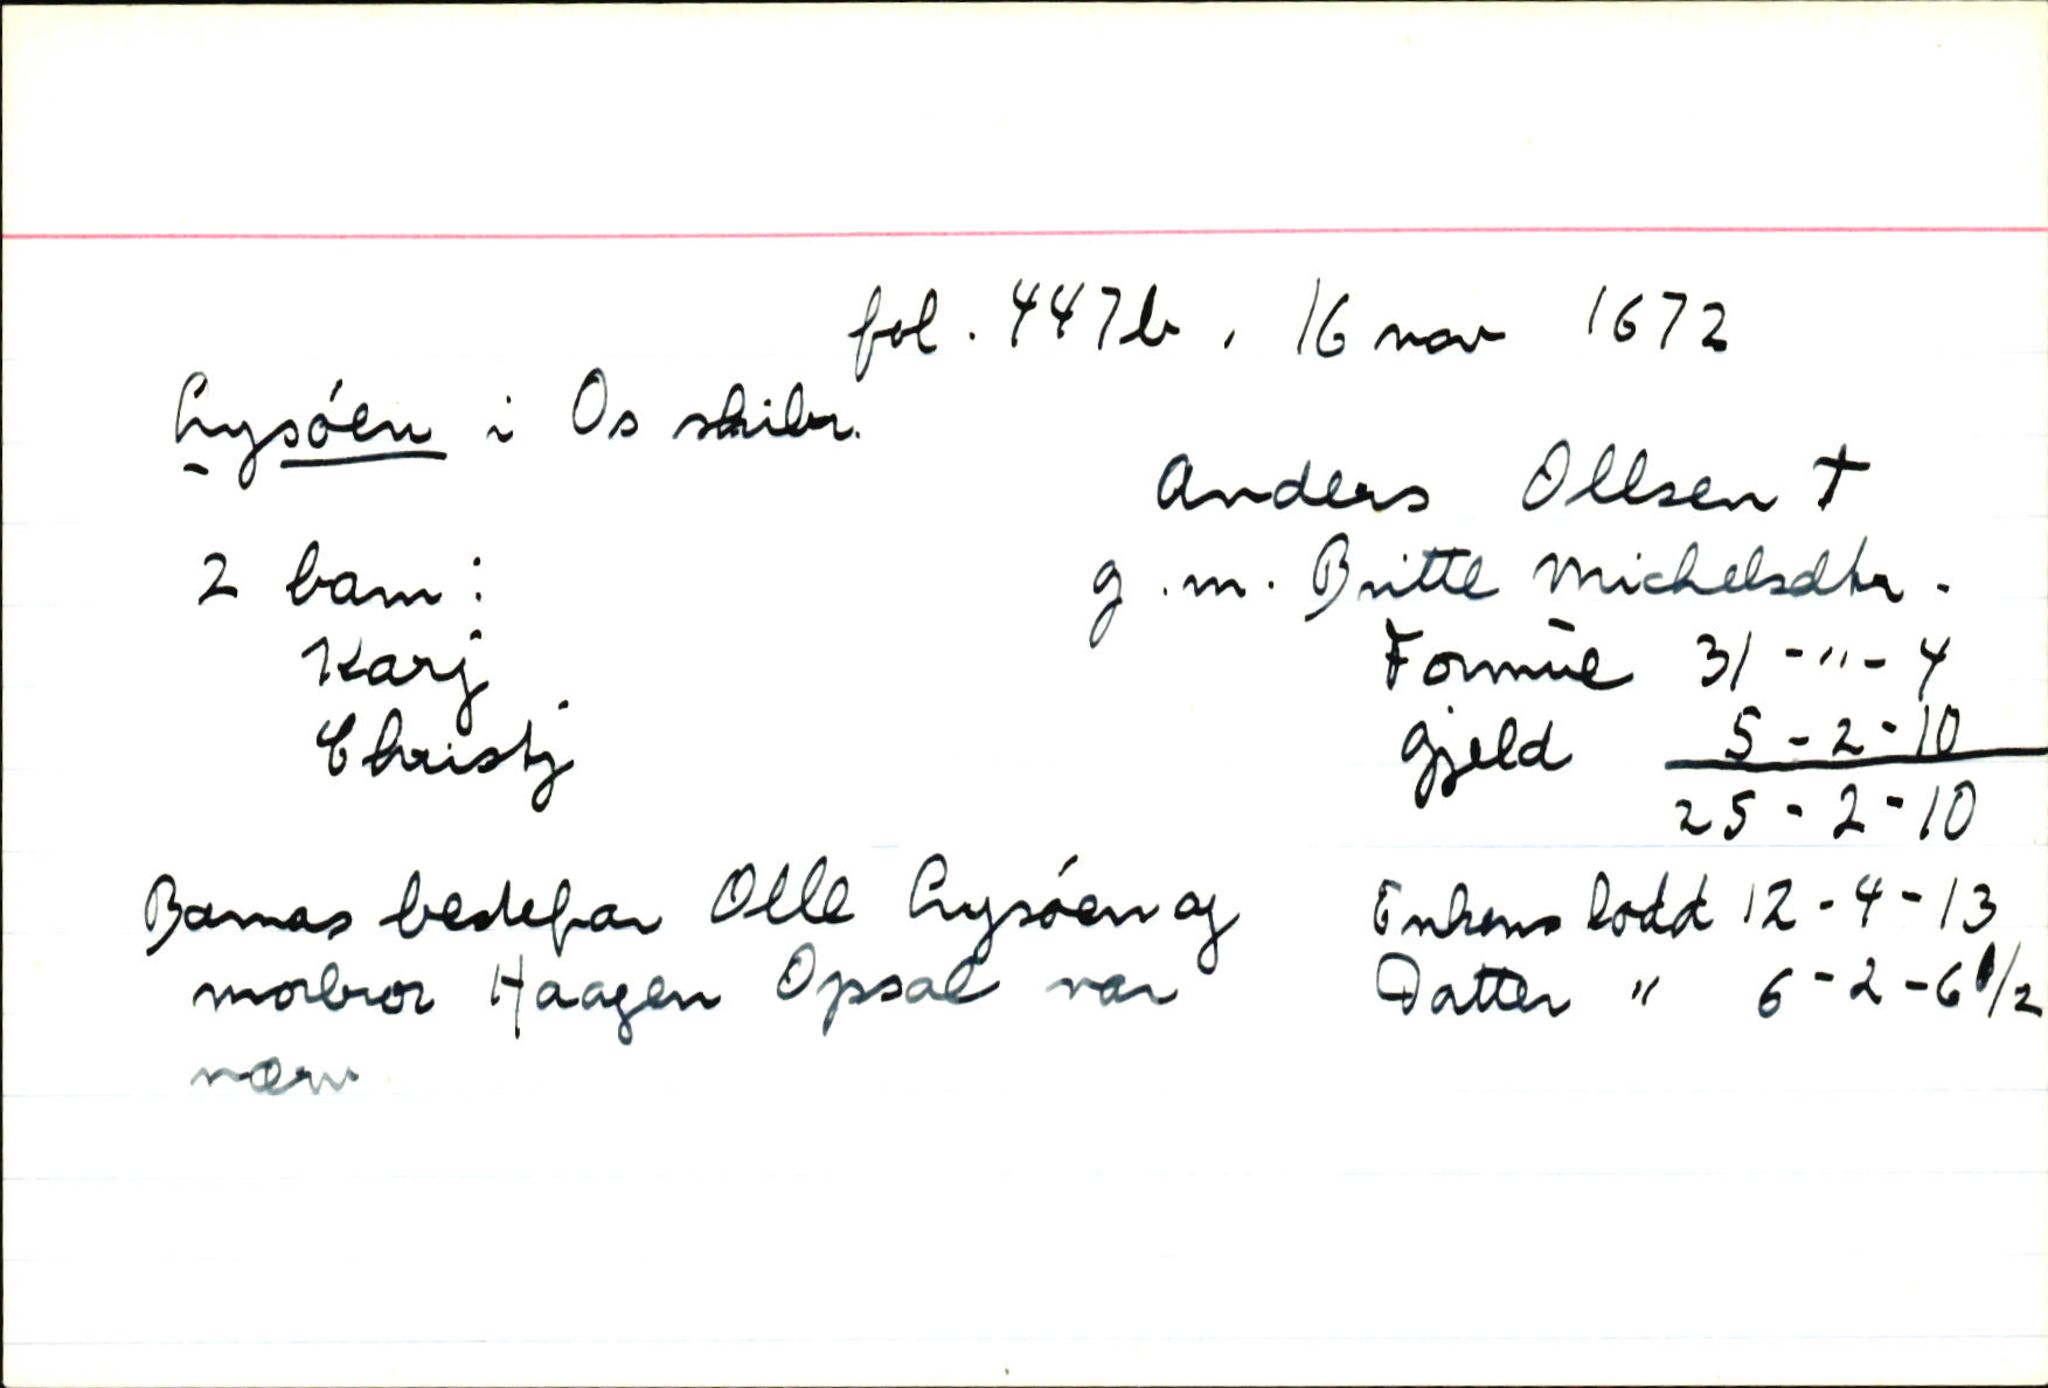 fol. 447b, 16 nov 1672
Lysóen i Os skibr.
Anders Ollsen †
2 barn: g.m. Britte Michelsdtr.
Karj Formue 31 - " - 4
Christj Gjeld 5 - 2 - 10
25 - 2 - 10
Barnas bestefar Olle Lysóen og Enkens lodd 12 - 4 - 13
morbror Haagen Opsal var Datter " 6 - 2 - 6 1/2
nærv.